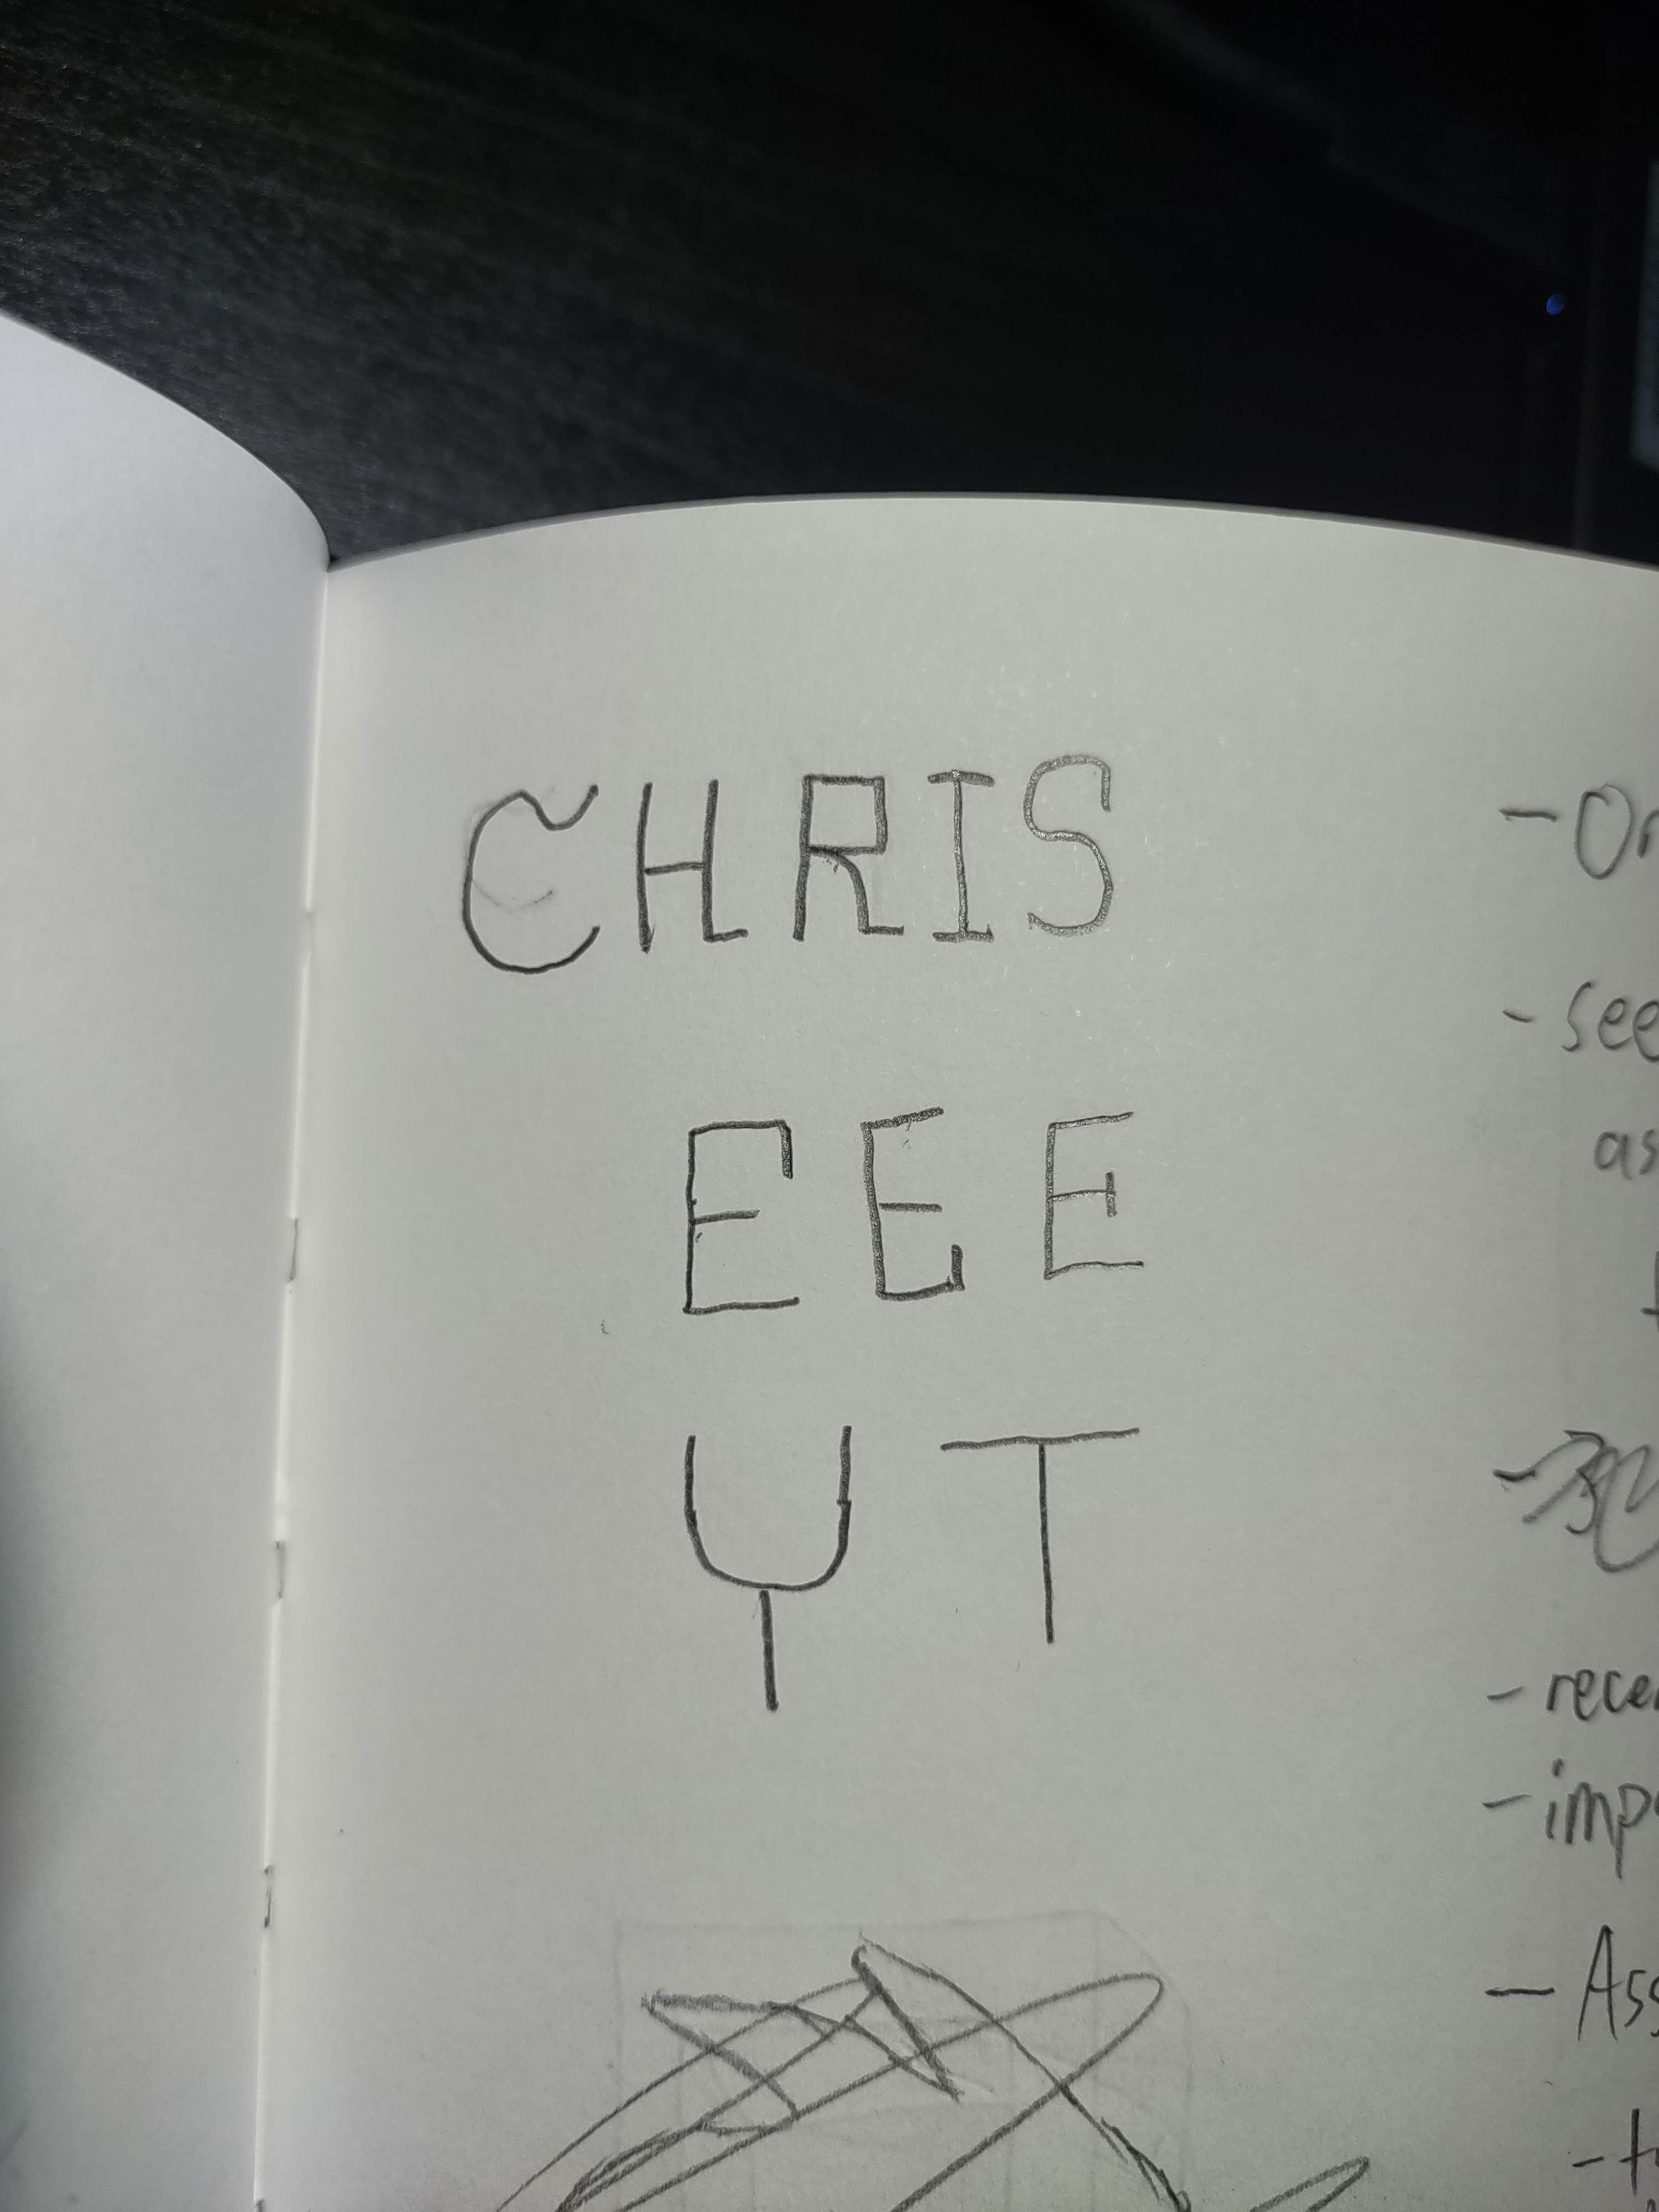 CHRIS
EEE
YT
- Or
- see
as
- recen
- impo
- Ass